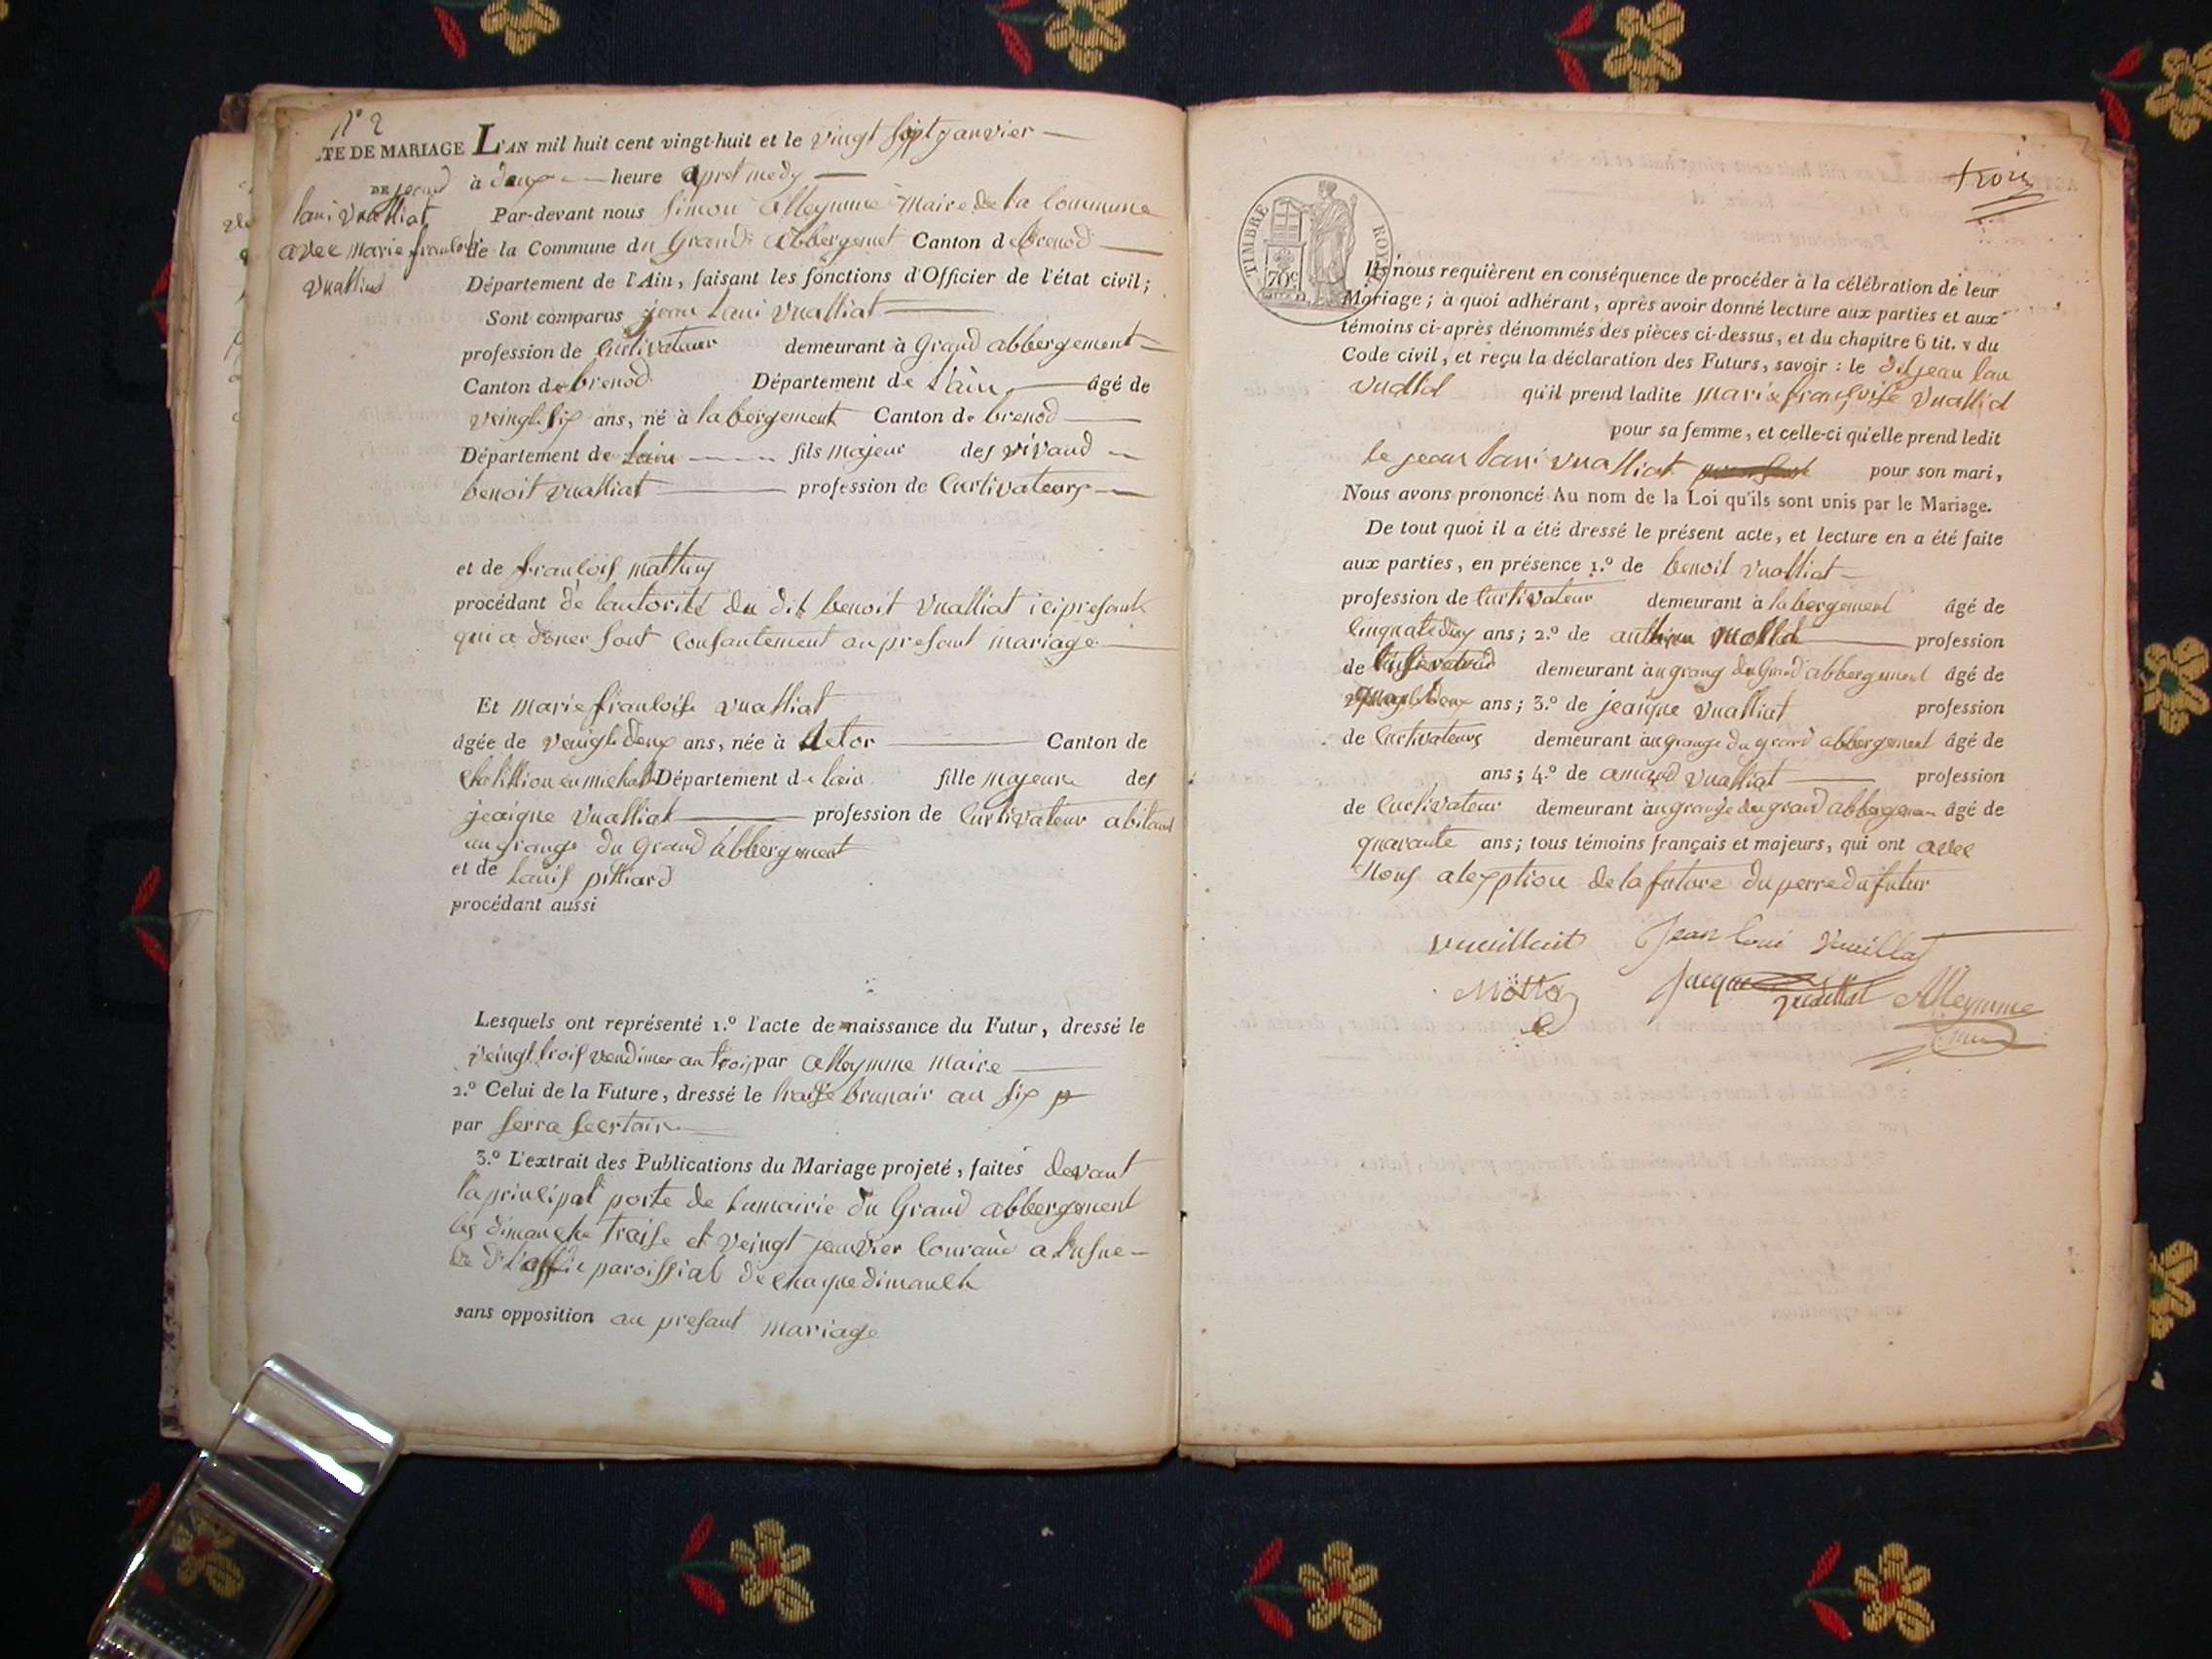 N° 2
TE DE MARIAGE L'AN mil huit cent vingt-huit et le vingt sept janvier
DE jean à deux heure apret medy
Laui Vualliat Par-devant nous Simon Alleymme Maire de la Commune
avec marie francoise de la Commune du Grand Abbergemet Canton de brenod
Vualliat Département de l'Ain, faisant les fonctions d'Officier de l'état civil;
Sont comparus jean Laui Vualliat
profession de Curtivateur demeurant à Grand abbergement
Canton de brenod Département de L'ain âgé de
veingt six ans, né à labergement Canton de brenod
Département de Lain fils majeur des vivand
benoit Vualliat profession de Curtivateurs
et de francois mathieu
procédant de lautorité du dit benoit Vualliat ici presant
qui a doner sont consantement au presant mariage
Et marie francoise Vualliat
âgée de veingt deux ans, née à Retor Canton de
Chatillion en michal Département de lain fille majeure des
jeaique Vualliat profession de Curtivateur abitant
au grange du Grand abbergement
et de Lauis pilliard
procédant aussi
Lesquels ont représenté 1.° l'acte de naissance du Futur, dressé le
veingt trois vendimer an trois par Alleymme Maire
2.° Celui de la Future, dressé le traise brumair an six p
par Serra
3.° L'extrait des Publications du Mariage projeté, faites devant
la principal porte de lamairie du Grand abbergement
les dimanche traise et veingt janvier courand a
de paroissial de chaque dimanch
sans opposition au presant mariage
trois
TIMBRE ROYAL
70c
Ils nous requièrent en conséquence de procéder à la célébration de leur
Mariage; à quoi adhérant, après avoir donné lecture aux parties et aux
témoins ci-après dénommés des pièces ci-dessus, et du chapitre 6 tit. v du
Code civil, et reçu la déclaration des Futurs, savoir: le dit jean lau
Vualliat qu'il prend ladite marie françoise Vualliat
pour sa femme, et celle-ci qu'elle prend ledit
le jean Laui Vualliat pour son mari,
Nous avons prononcé Au nom de la Loi qu'ils sont unis par le Mariage.
De tout quoi il a été dressé le présent acte, et lecture en a été faite
aux parties, en présence 1.° de benoit Vualliat
profession de Curtivateur demeurant à labergement âgé de
ans; 2.° de profession
de demeurant à au grang du Grand abbergement âgé de
ans; 3.° de jeaique Vualliat profession
de Curtivateurs demeurant à au grange du grand abbergement âgé de
ans; 4.° de amand Vualliat profession
de Curtivateur demeurant à au grange du grand abbagemen âgé de
quarante ans; tous témoins français et majeurs, qui ont avec
Nous alexption de la future du perre du futur
vueillait Jean loui Vuaillat
Jacque vuaillat Alleymme